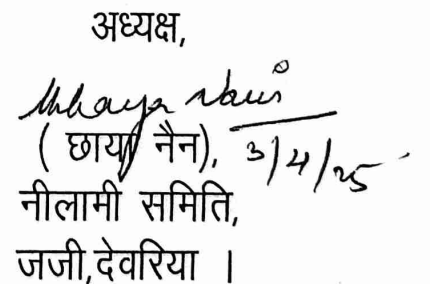 अध्यक्ष,
Chhaya Nain
3/4/25
( छाया नैन),
नीलामी समिति,
जजी,देवरिया ।